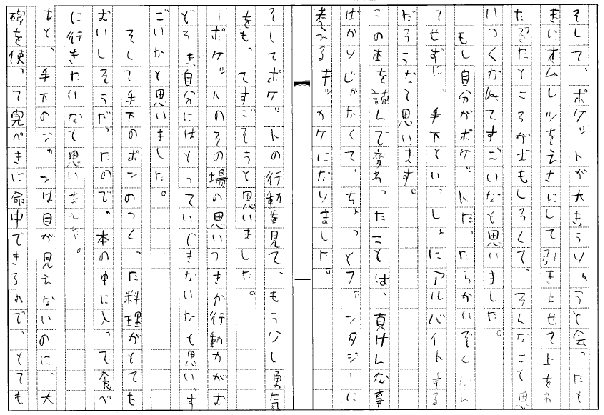 そして、ポケットが大きうりゅうと会ったと
きにオムレツをえさにして引きよせて上をわ
たったところがおもしろくて、そんなことも思
いつくかなってすごいなと思いました。
もし自分がポケットだったらかいぞく
せずに、手下といっしょにアルバイトする
だろうなと思います。
この本を読んで変わったことは、真けんな事
ばかりじゃなくて、ちょっとファンタジーに
考えるキッカケになりました。
そしてポケットの行動を見て、もう少し勇気
をもってすごそうと思いました。
ポケットのその場の思いつきが行動力がお
どろき、自分にはとっていできないなと思い、す
ごいなと思いました。
そして手下のポンのつくった料理がとても
おいしそうだったので、本の中に入って食べ
に行きたいなと思いました。
あと、手下のジャンは目が見えないのに、大
砲を使って完ぺきに命中できるので、とても